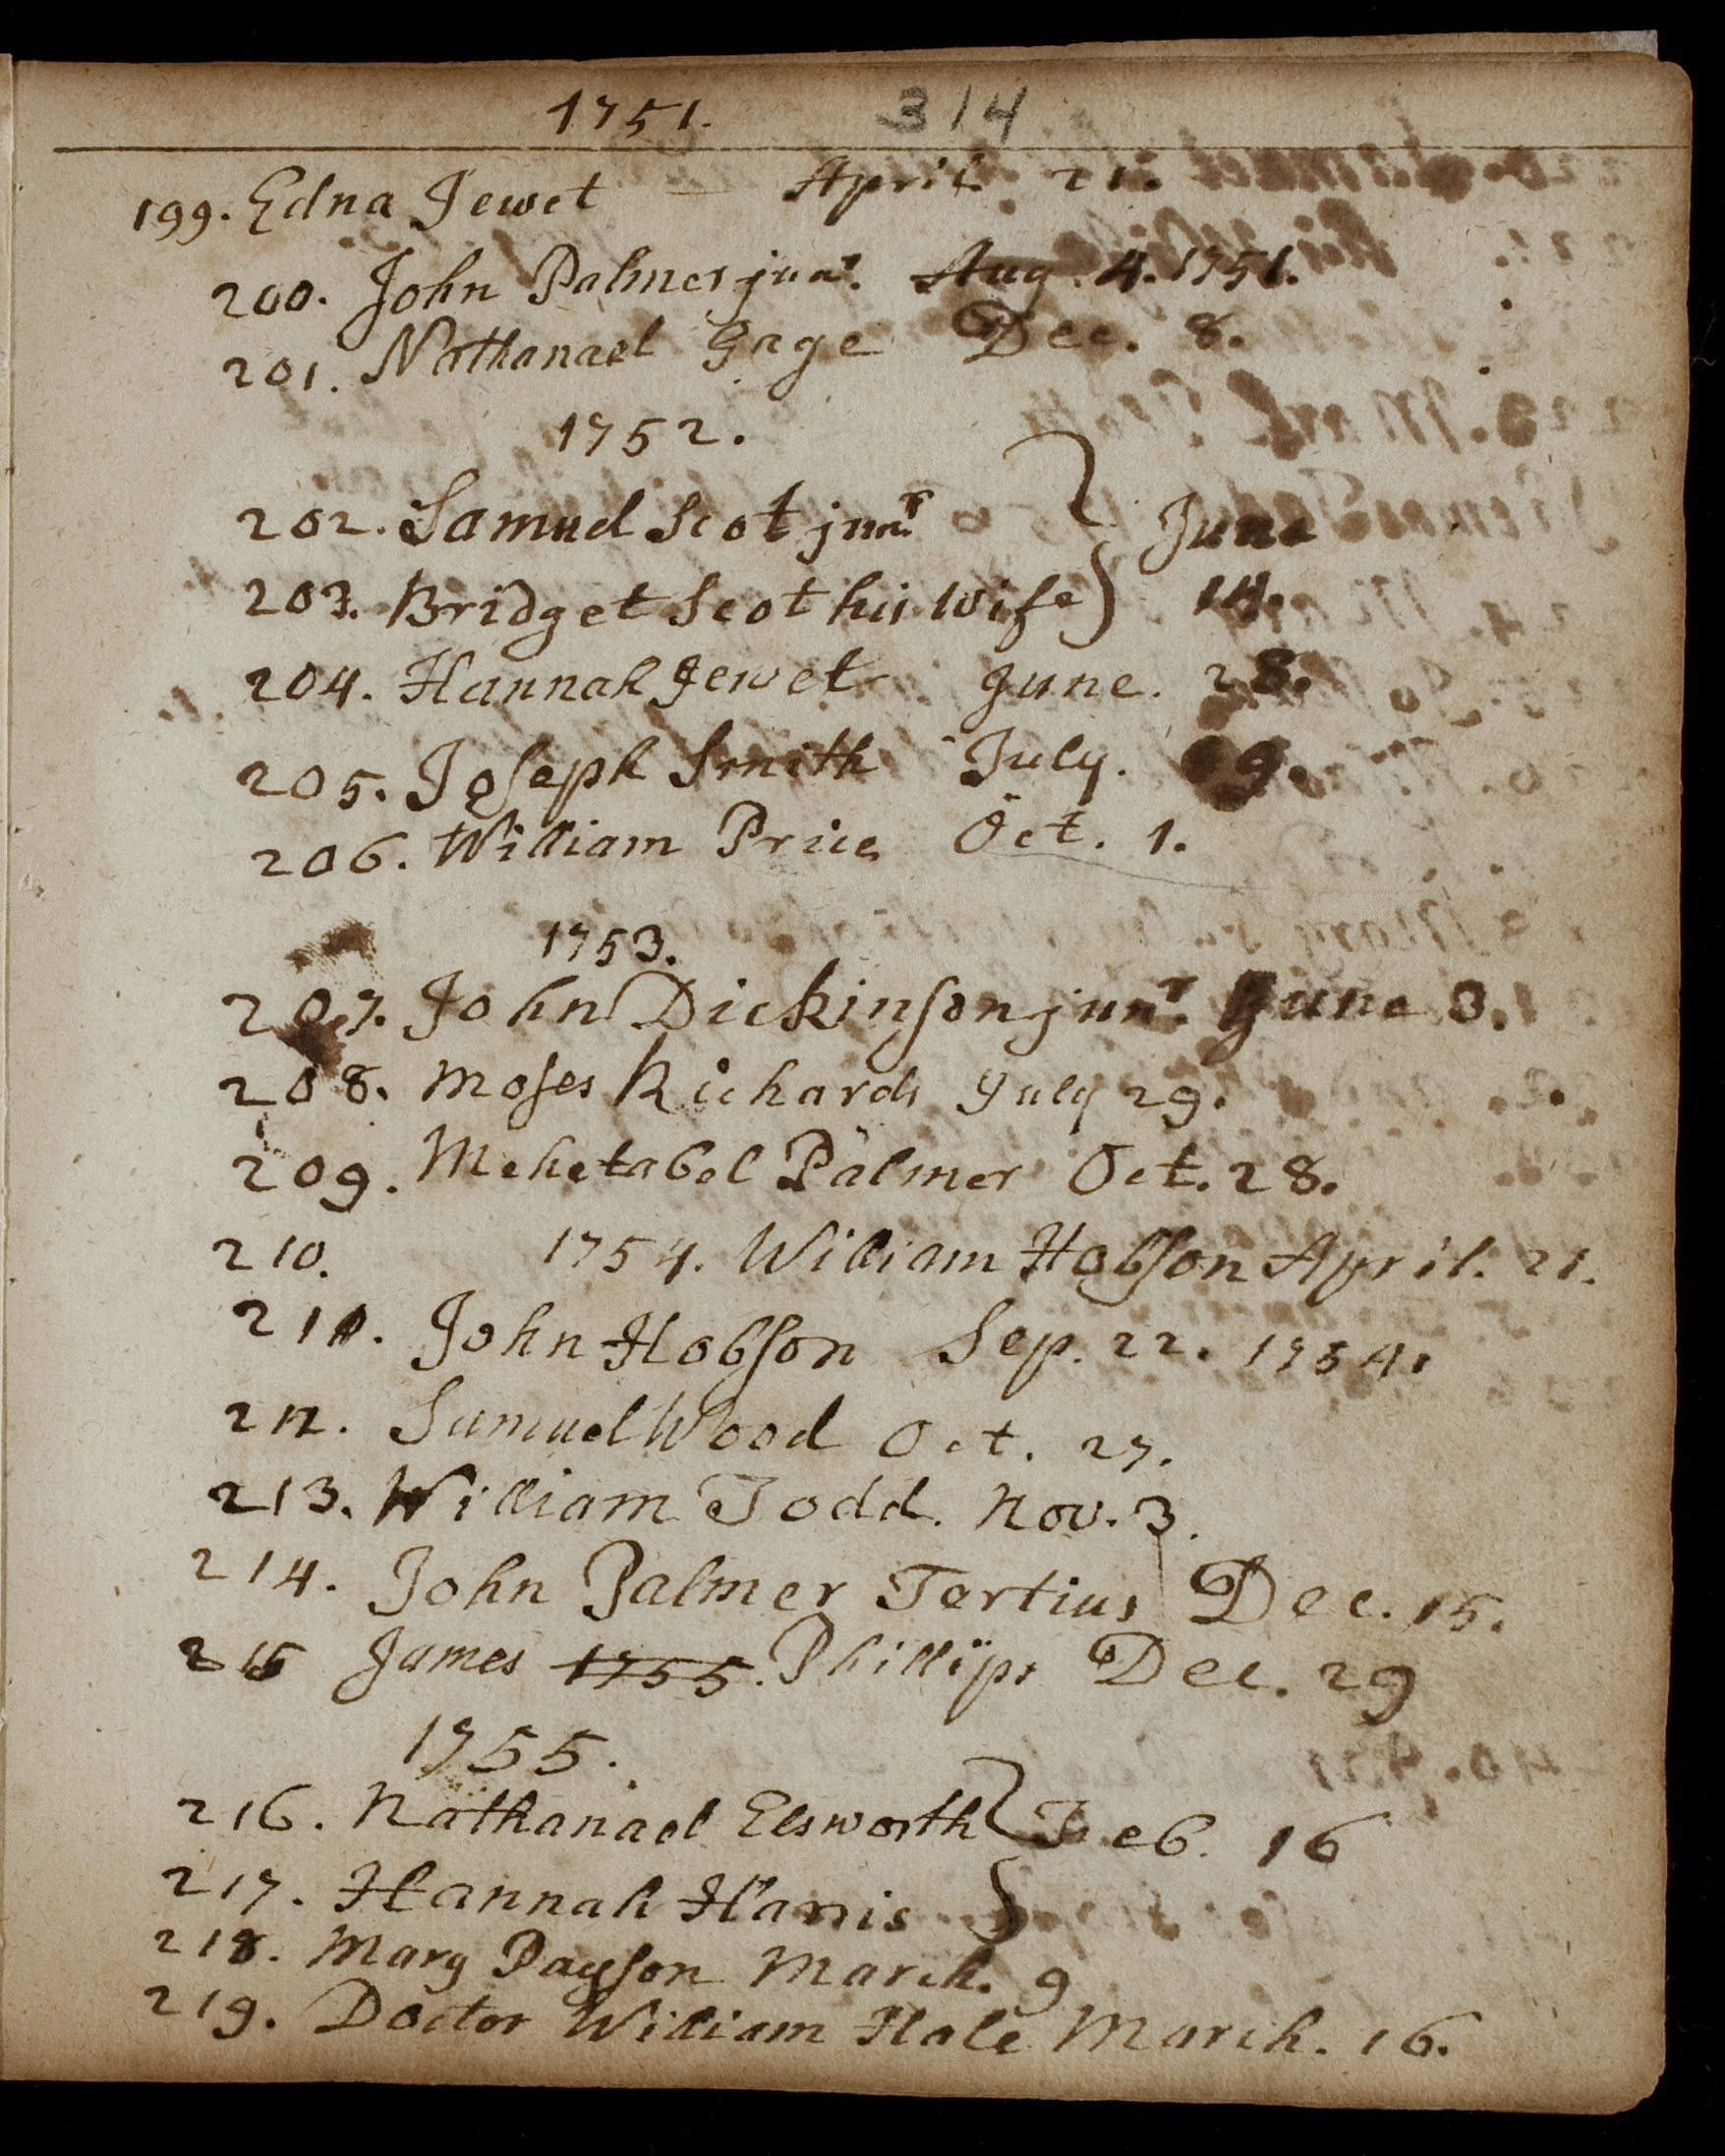 1751. 314
199. Edna Jewet — April 21.
200. John Palmer junr. Aug. 4. 1751.
201. Nathanael Gage Dec. 8.
1752.
202. Samuel Scot junr. } June
203. Bridget Scot his Wife } 14.
204. Hannah Jewet June. 28.
205. Joseph Smith July. 9.
206. William Price Oct. 1.
1753.
207. John Dickinson junr. June 3.
208. Moses Richards July 29.
209. Mehetabel Palmer Oct. 28.
210. 1754. William Hobson April. 21.
211. John Hobson Sep. 22. 1754.
212. Samuel Wood Oct. 27.
213. William Todd. Nov. 3.
214. John Palmer Tertius Dec. 15.
215 James 1755. Phillips Dec. 29
1755.
216. Nathanael Elsworth } Feb. 16
217. Hannah Harris }
218. Mary Payson March. 9
219. Doctor William Hale March. 16.